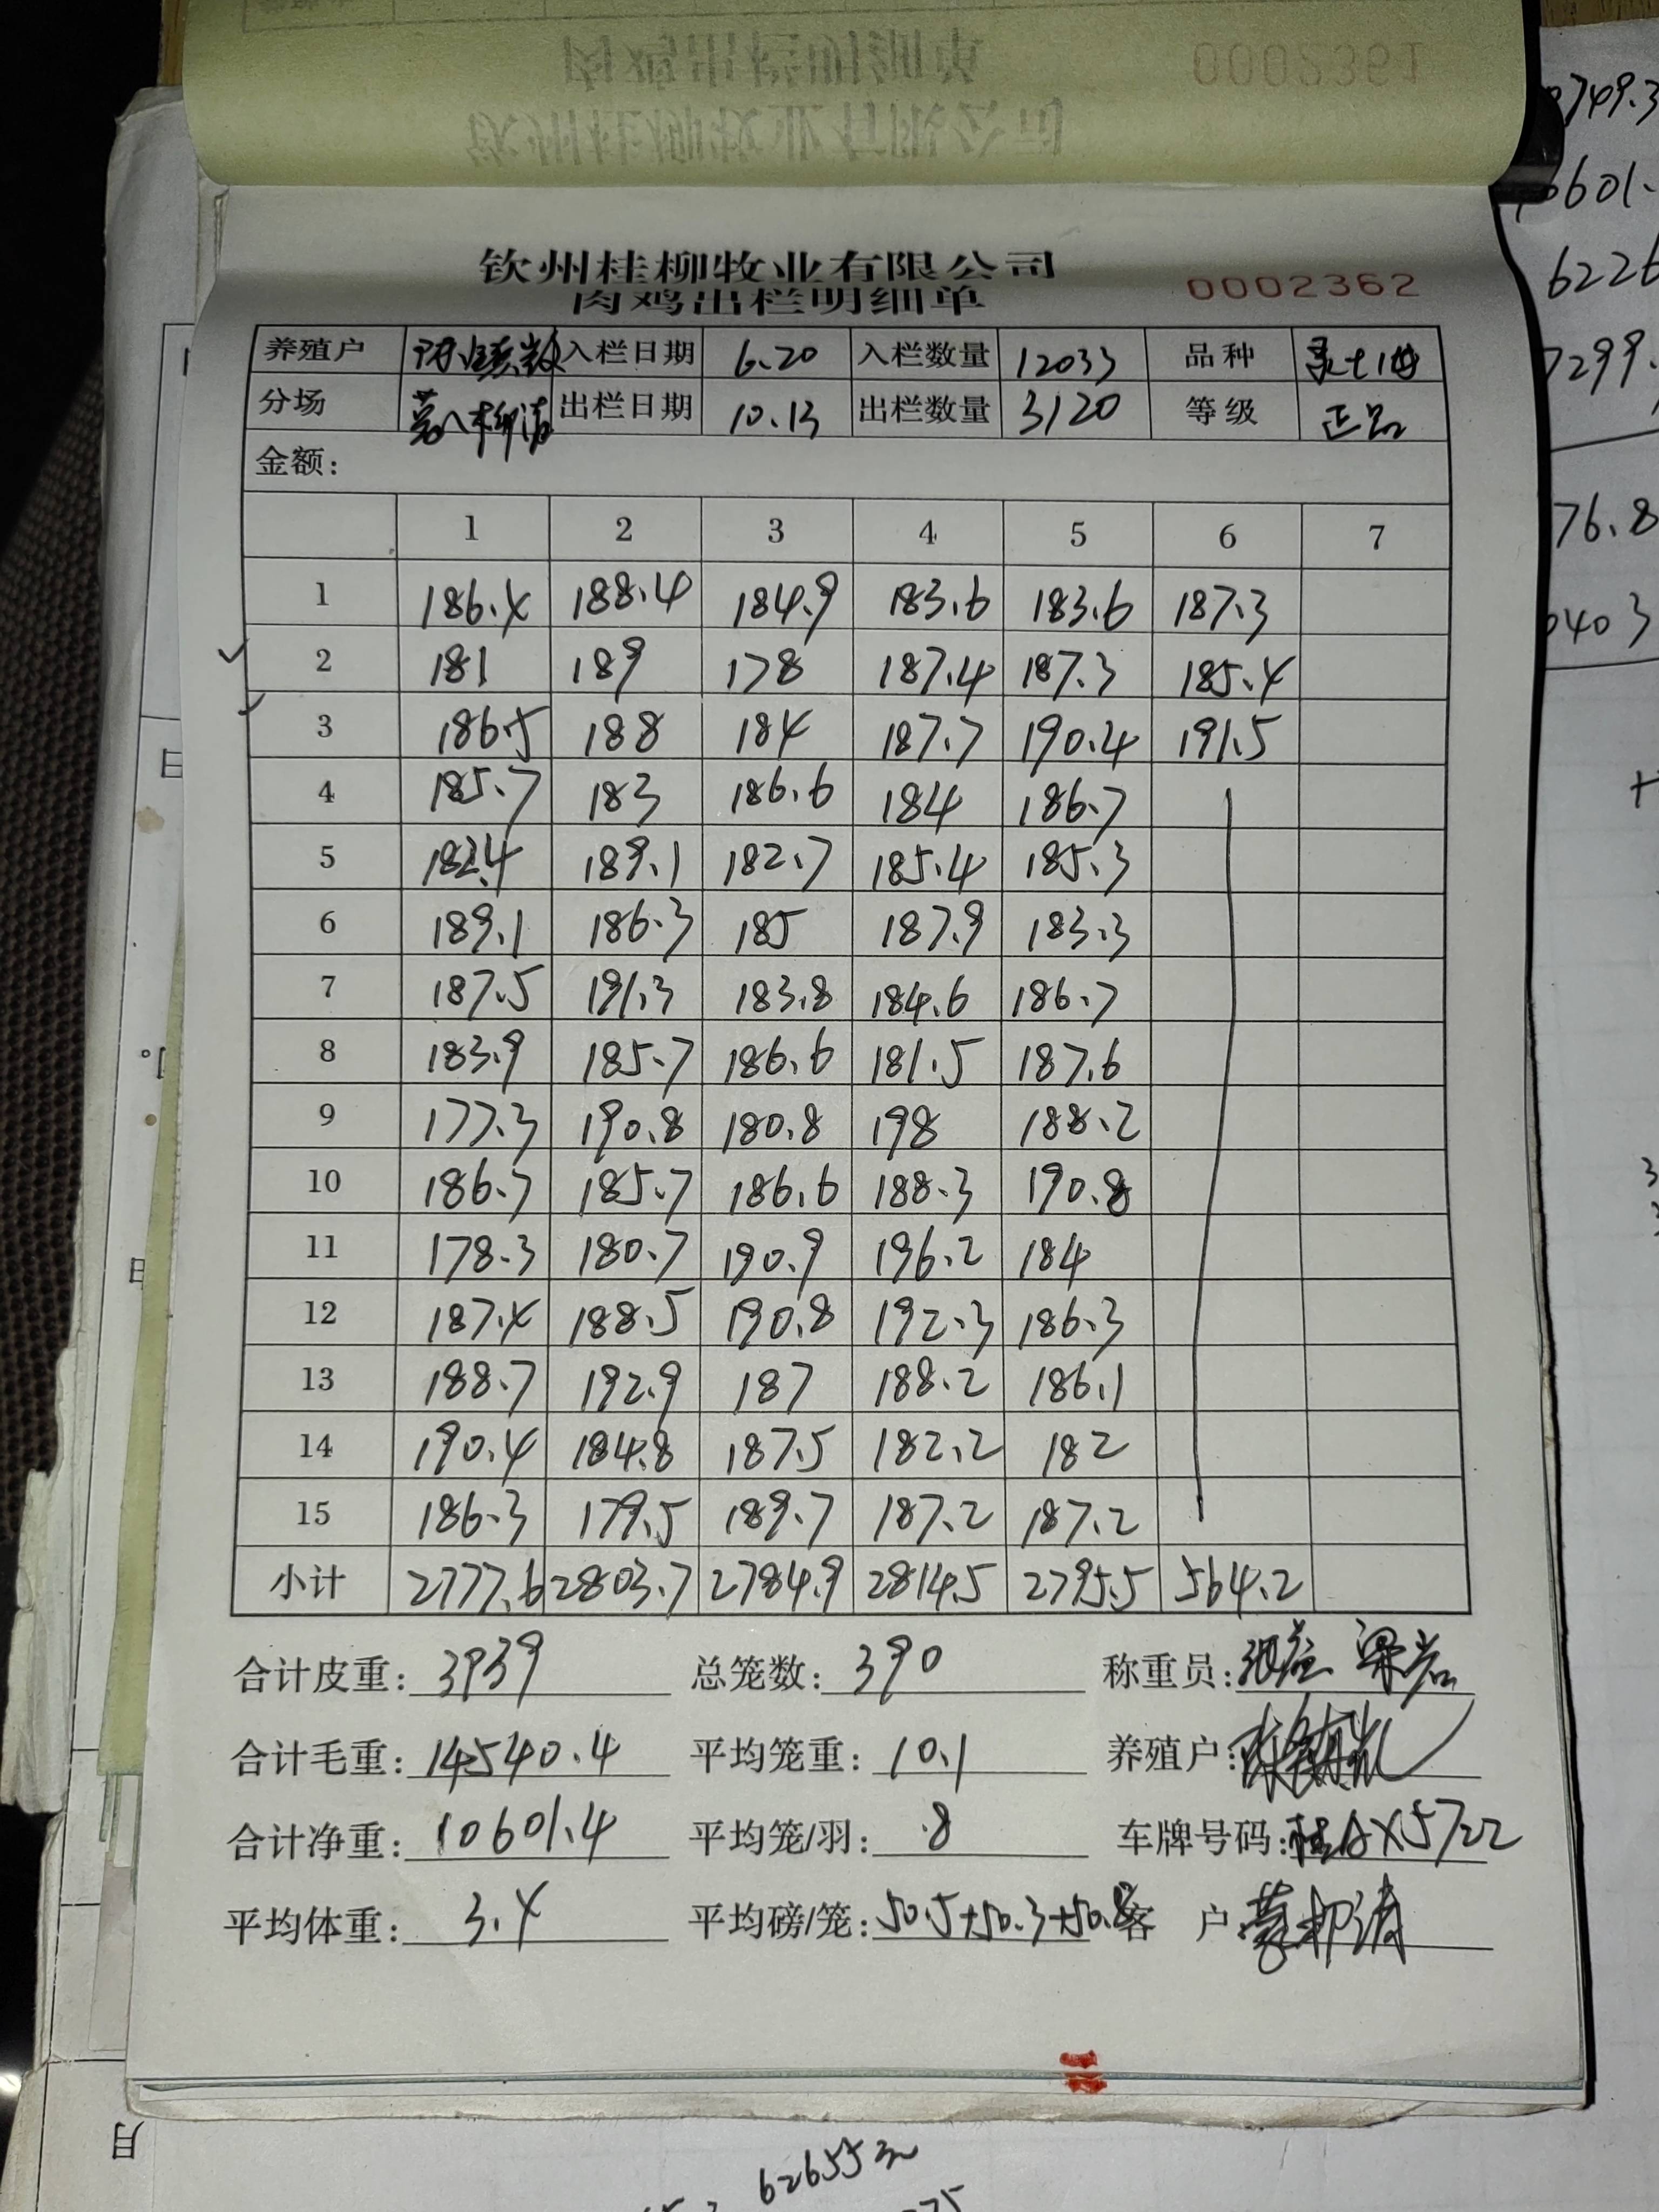 0002361
钦州桂柳牧业有限公司
肉鸡出栏明细单 0002362
养殖户 入栏日期 6.20 入栏数量 12033 品种
分场 出栏日期 10.13 出栏数量 3120 等级 正品
金额:
1 2 3 4 5 6 7
1 186.4 188.4 184.9 183.6 183.6 187.3
2 181 189 178 187.4 187.3 185.4
3 186.5 188 184 187.7 190.4 191.5
4 185.7 183 186.6 184 186.7
5 182.4 189.1 182.7 185.4 185.3
6 189.1 186.3 185 187.9 183.3
7 187.5 191.3 183.8 184.6 186.7
8 183.9 185.7 186.6 181.5 187.6
9 177.3 190.8 180.8 198 188.2
10 186.7 185.7 186.6 188.3 190.8
11 178.3 180.7 190.9 196.2 184
12 187.4 188.5 190.8 192.3 186.3
13 188.7 192.9 187 188.2 186.1
14 190.4 184.8 187.5 182.2 182
15 186.3 179.5 189.7 187.2 187.2
小计 2777.6 2803.7 2784.9 2814.5 2795.5 564.2
合计皮重: 3939 总笼数: 390 称重员:
合计毛重: 14540.4 平均笼重: 10.1 养殖户:
合计净重: 10601.4 平均笼/羽: 8 车牌号码: 桂AX5722
平均体重: 3.4 平均磅/笼: 50.5+50.3+50.8 客户
749.3
6601.
6226
7299.
76.8
0403
日
月
62655元